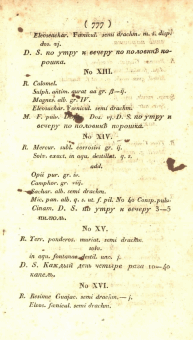 ( 777 )
Eleosachar. Fœnicul. semi drachm. m. f.
dos. vj.
D. S. по утру и вечеру по половинѣ по-
рошка.
No XIII.
R. Calomel.
Sulph. antim. aurat aa gr. β—ij.
Magnes. alb. gr. IV.
Eleosachar. Fœnicul. semi drachm.
M. F. pulv. Dos. vj. D. S. по утру и
вечеру по половинѣ порошка.
No XIV.
R. Mercur. subl. corrosiv. gr. ij.
Solv. exact. in aqu. destillat. q. s.
add.
Opii pur. gr. iv.
Camphor. gr. viij.
Sachar. alb. semi drachm.
Mic. pan. alb. q. s. ut f. pil. No 40 Consp. pulv.
Cinam. D. S. по утру и вечеру 3—5
пилюль.
No XV.
R. Terr. ponderos. muriat. semi drachm.
solv.
in aqu. fontanae destil. unc. j.
D. S. Каждый день четыре раза 10—40
капель.
No XVI.
R. Resinae Guajac. semi drachm.— j.
Eleos. fœnicul. semi drachm.